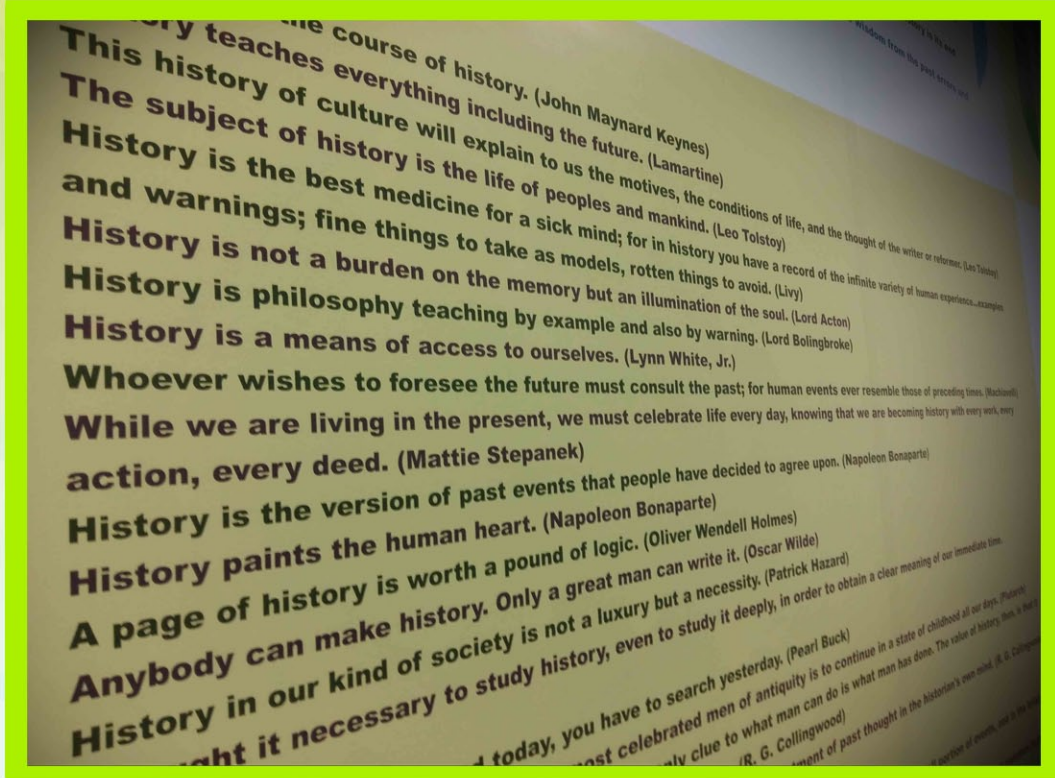 the course of history. (John Maynard Keynes)
teaches everything including the future. (Lamartine)
This history of culture will explain to us the motives, the conditions of life, and the thought of the writer or reformer. (Leo Tolstoy)
The subject of history is the life of peoples and mankind. (Leo Tolstoy)
History is the best medicine for a sick mind; for in history you have a record of the infinite variety of human experience...examples
and warnings; fine things to take as models, rotten things to avoid. (Livy)
History is not a burden on the memory but an illumination of the soul. (Lord Acton)
History is philosophy teaching by example and also by warning. (Lord Bolingbroke)
History is a means of access to ourselves. (Lynn White, Jr.)
Whoever wishes to foresee the future must consult the past; for human events ever resemble those of preceding times. (Machiavelli)
While we are living in the present, we must celebrate life every day, knowing that we are becoming history with every work, every
action, every deed. (Mattie Stepanek)
History is the version of past events that people have decided to agree upon. (Napoleon Bonaparte)
History paints the human heart. (Napoleon Bonaparte)
A page of history is worth a pound of logic. (Oliver Wendell Holmes)
Anybody can make history. Only a great man can write it. (Oscar Wilde)
History in our kind of society is not a luxury but a necessity. (Patrick Hazard)
it necessary to study history, even to study it deeply, in order to obtain a clear meaning of our immediate time.
today, you have to search yesterday. (Pearl Buck)
most celebrated men of antiquity is to continue in a state of childhood all our days. (Plutarch)
clue to what man can do is what man has done. The value of history, then, is that it
(R. G. Collingwood)
of past thought in the historian's own mind. (R. G. Collingwood
wisdom from the past errors and